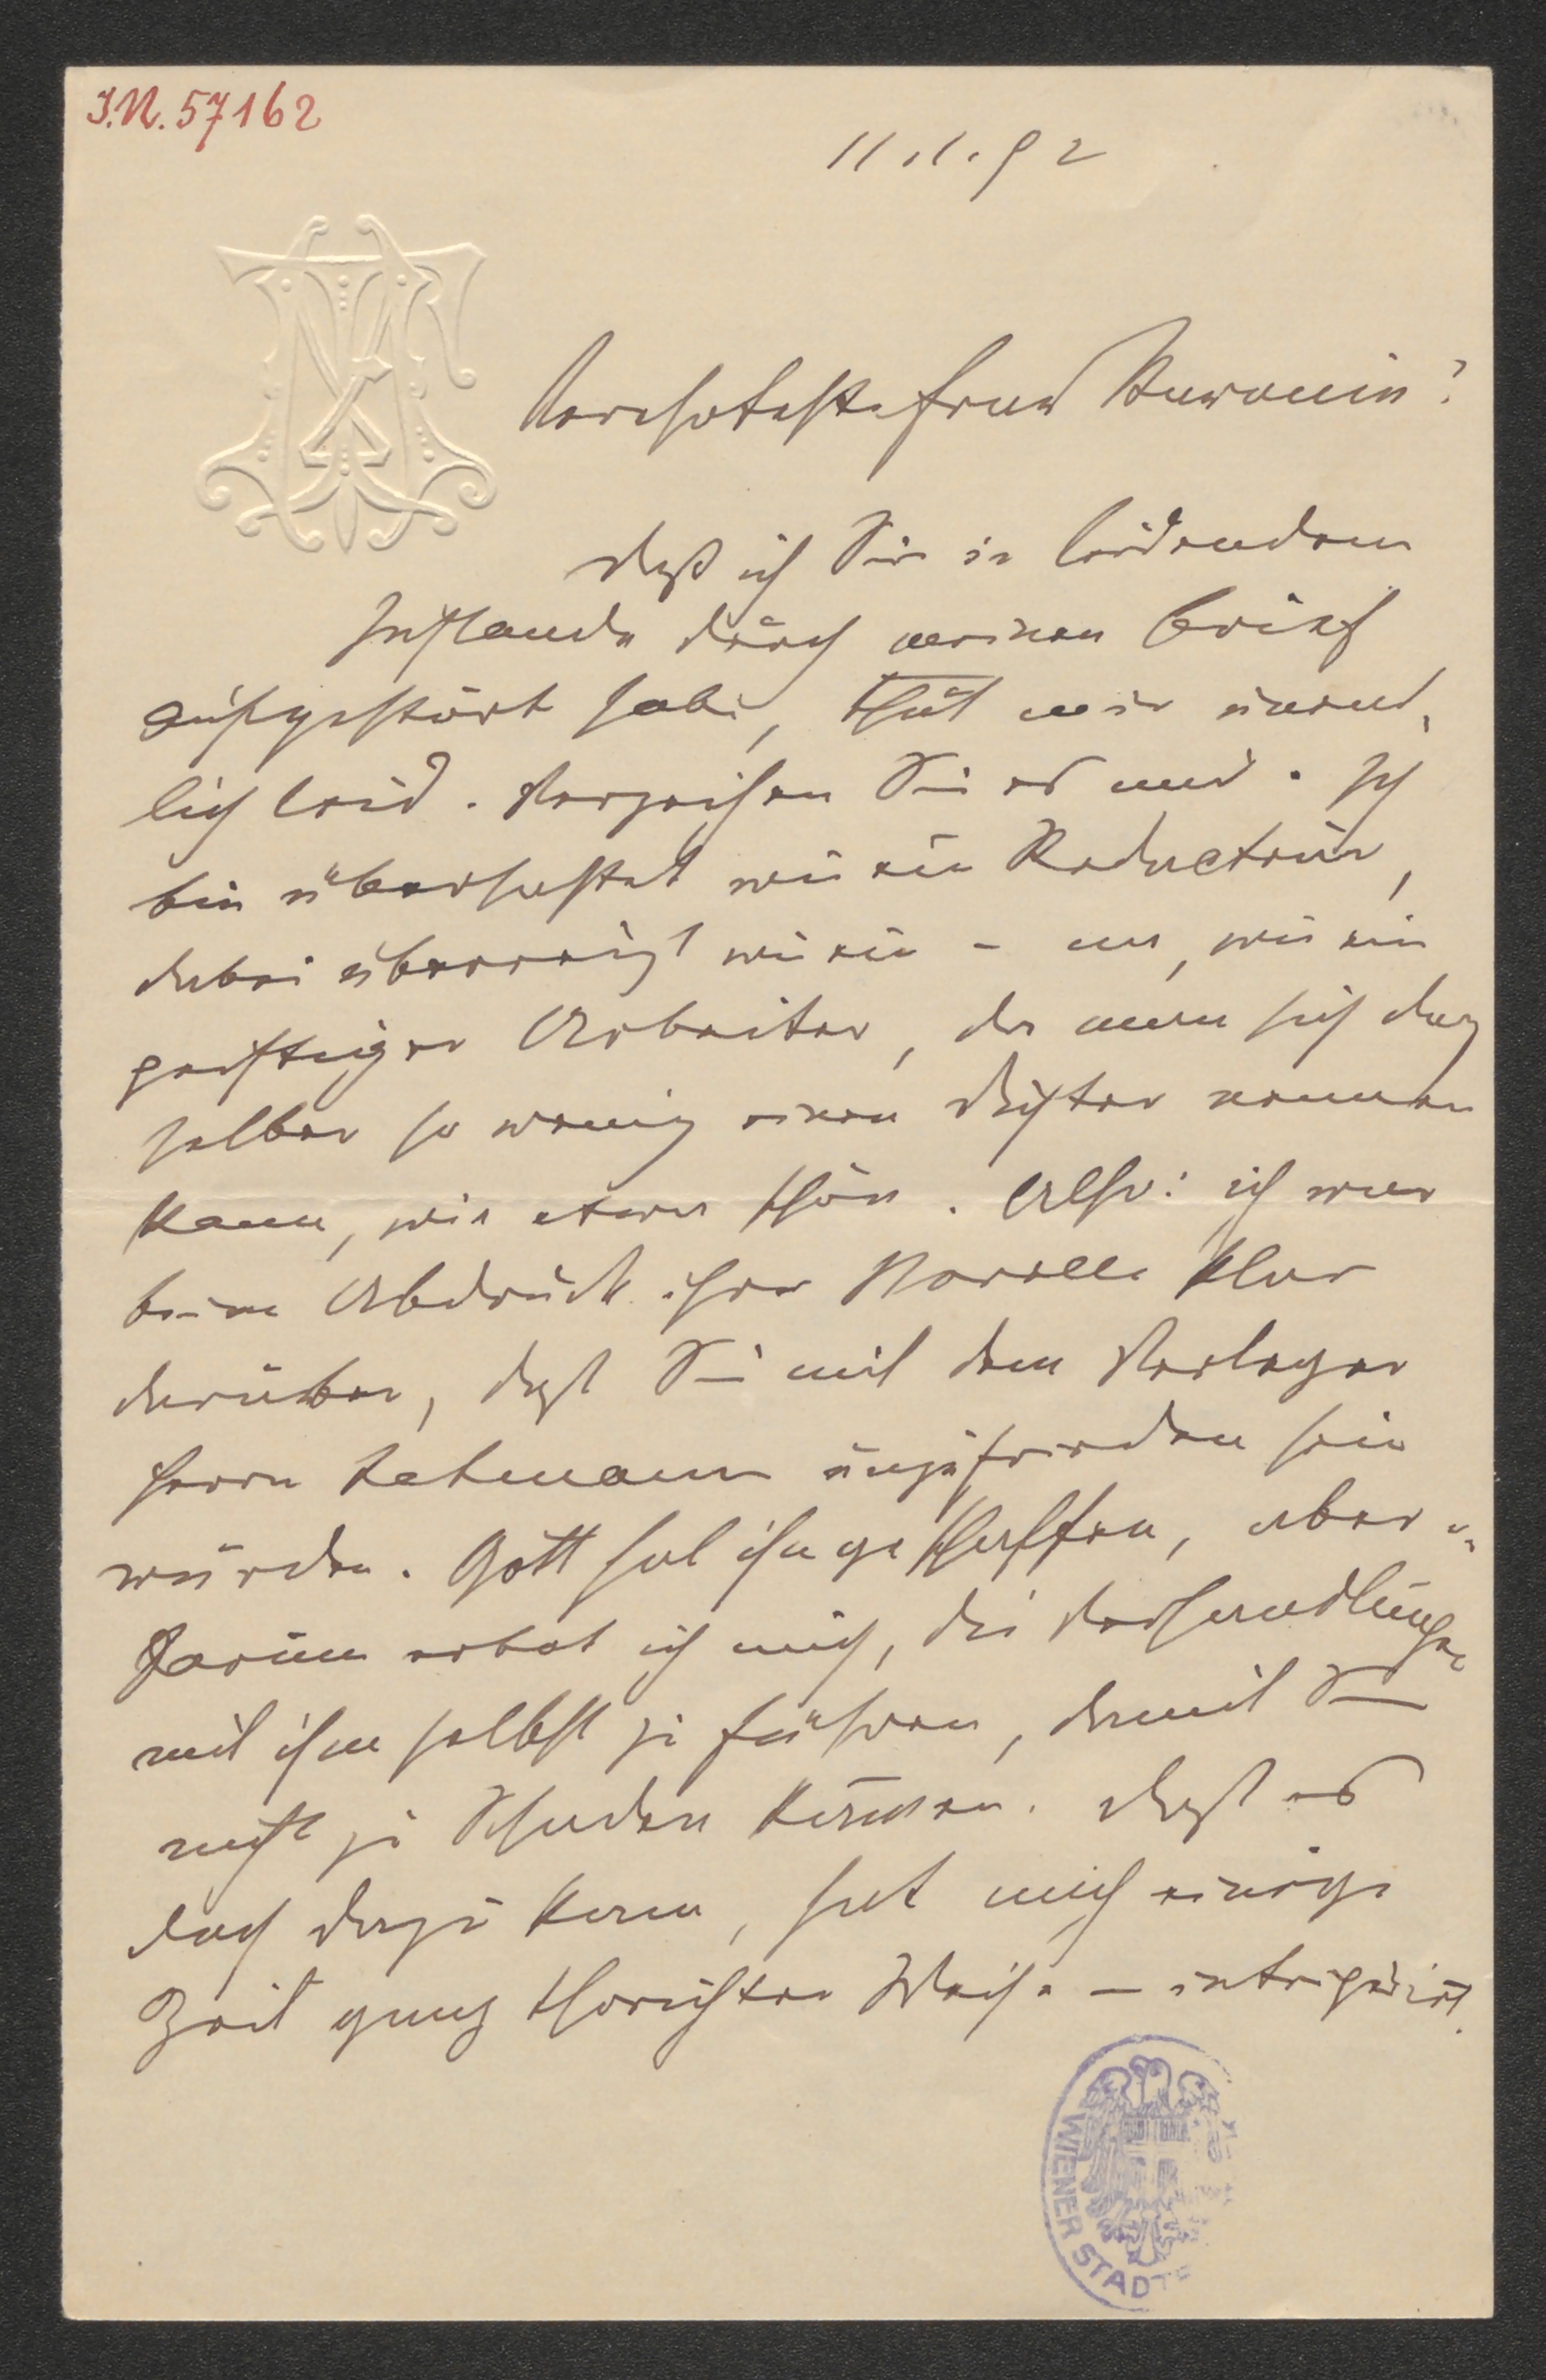 I.N. 57162
11.1.92
Verehrteste Frau Baronin!
Daß ich Sie in leidendem
Zustande durch meinen Brief
aufgestört habe, thut mir unend-
lich leid. Verzeihen Sie es mir. Ich
bin überhastet wie ein Redacteur,
dabei überreizt wie ein – na, wie ein
geistiger Arbeiter, da man sich doch
selber so wenig einen Dichter nennen
kann, wie etwa schön. Also: ich war
beim Abdruck ihrer Novelle klar
darüber, daß Sie mit dem Verleger
Herrn unzufrieden sein
würden. Gott hat ihn geschaffen, aber
Darum erbot ich mich, die Verhandlungen
mit ihm selbst zu führen, damit Sie
nicht zu Schaden kämen. Daß es
doch dazu kam, hat mich einige
Zeit ganz thörichter Weise – intriguirt.
WIENER STADT